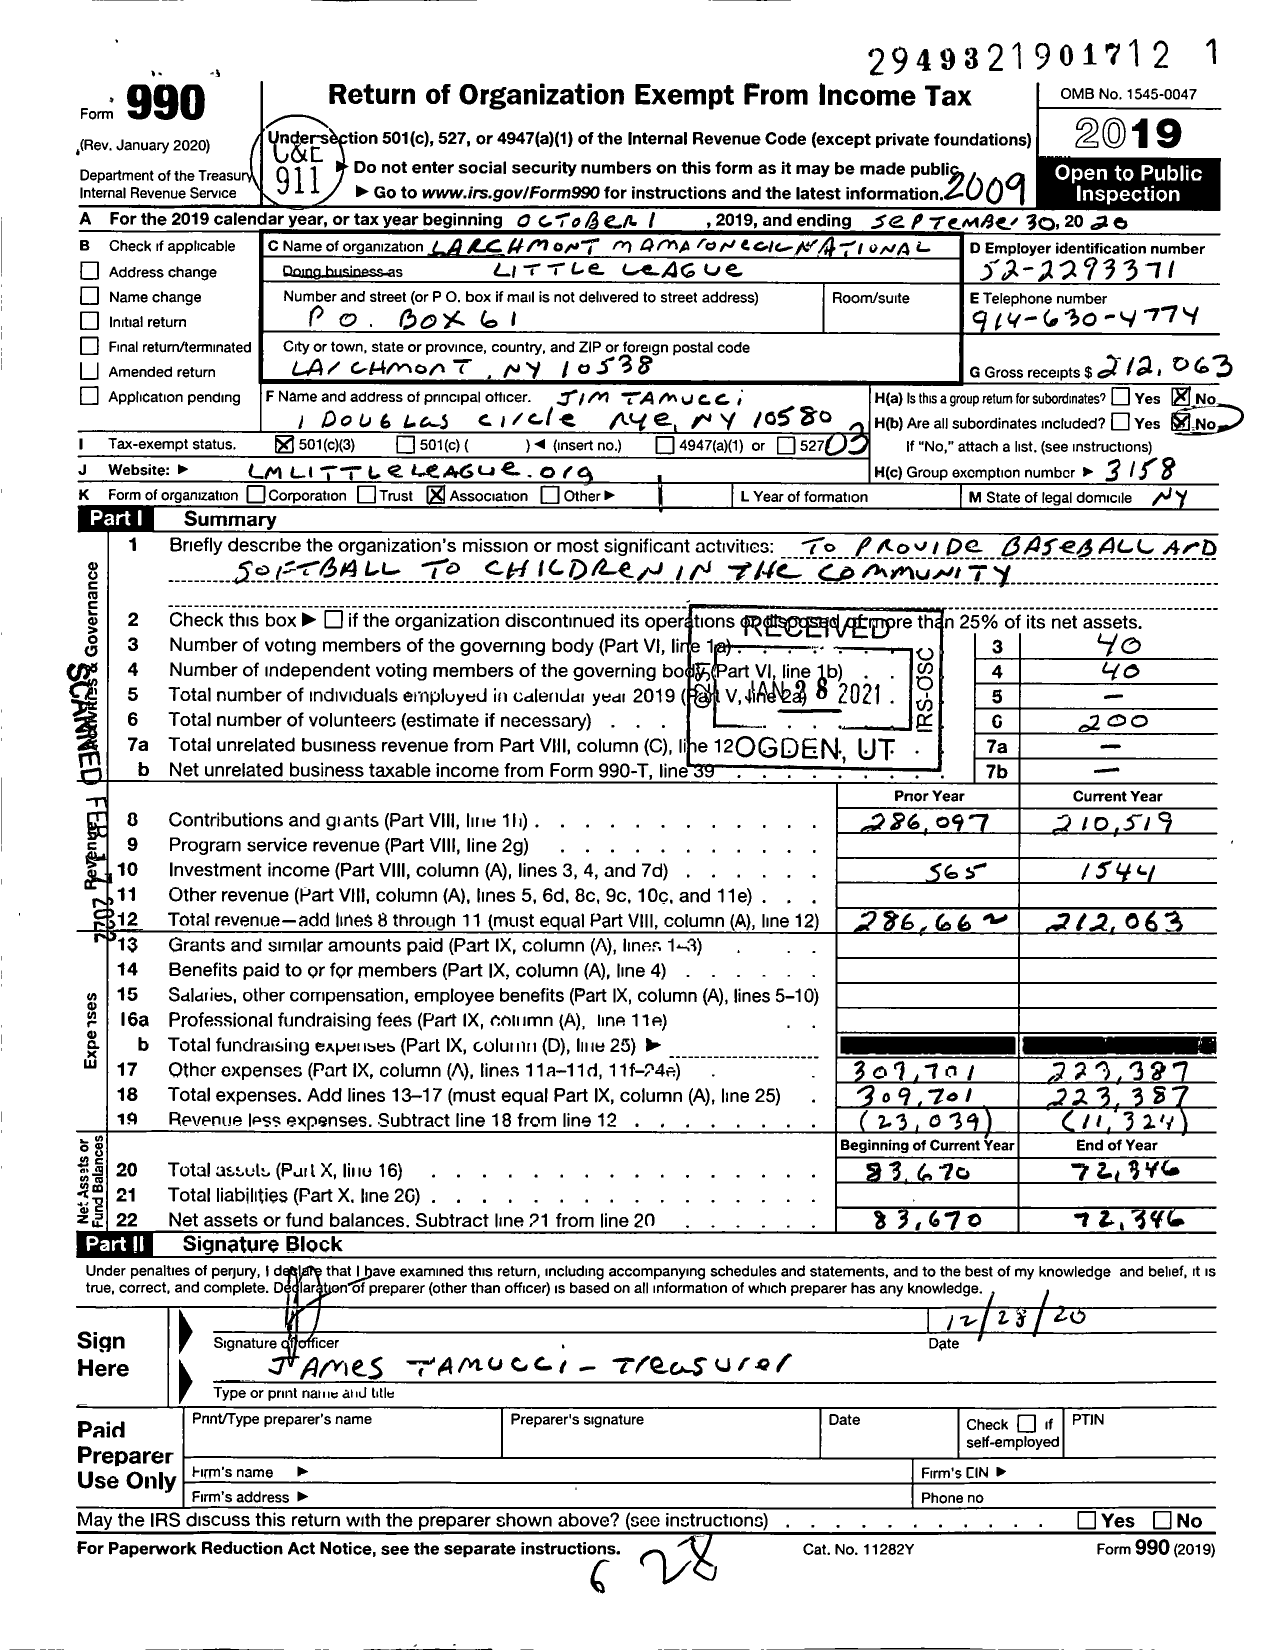 29493219017 12 1
Form 990
(Rev. January 2020)
Department of the Treasury
Internal Revenue Service
Return of Organization Exempt From Income Tax
Under section 501(c), 527, or 4947(a)(1) of the Internal Revenue Code (except private foundations)
▶ Do not enter social security numbers on this form as it may be made public.
▶ Go to www.irs.gov/Form990 for instructions and the latest information.
C&E
911
2009
OMB No. 1545-0047
2019
Open to Public
Inspection
A For the 2019 calendar year, or tax year beginning OCTOBER 1 , 2019, and ending SEPTEMBER 30, 20 20
B Check if applicable
Address change
Name change
Initial return
Final return/terminated
Amended return
Application pending
C Name of organization LARCHMONT MAMARONECK NATIONAL
Doing business as LITTLE LEAGUE
Number and street (or P O. box if mail is not delivered to street address) Room/suite
P O. BOX 61
City or town, state or province, country, and ZIP or foreign postal code
LARCHMONT, NY 10538
D Employer identification number
52-2293371
E Telephone number
914-630-4774
G Gross receipts $ 212,063
F Name and address of principal officer. JIM TAMUCCI
1 DOUGLAS CIRCLE RYE, NY 10580
H(a) Is this a group return for subordinates? Yes X No
H(b) Are all subordinates included? Yes X No
If "No," attach a list. (see instructions)
H(c) Group exemption number ▶ 3158
I Tax-exempt status. X 501(c)(3) 501(c) ( ) ◀ (insert no.) 4947(a)(1) or 527 03
J Website: ▶ LMLITTLELEAGUE.org
K Form of organization Corporation Trust X Association Other ▶ L Year of formation M State of legal domicile NY
Part I Summary
Activities & Governance
1 Briefly describe the organization's mission or most significant activities: TO PROVIDE BASEBALL AND
SOFTBALL TO CHILDREN IN THE COMMUNITY
2 Check this box ▶ if the organization discontinued its operations or disposed of more than 25% of its net assets.
3 Number of voting members of the governing body (Part VI, line 1a) 3 40
4 Number of independent voting members of the governing body (Part VI, line 1b) 4 40
5 Total number of individuals employed in calendar year 2019 (Part V, line 2a) 5 —
6 Total number of volunteers (estimate if necessary) 6 200
7a Total unrelated business revenue from Part VIII, column (C), line 12 7a —
b Net unrelated business taxable income from Form 990-T, line 39 7b —
RECEIVED
JAN 28 2021
IRS-OSC
OGDEN, UT
SCANNED FEB 1 2022
Prior Year Current Year
Revenue
8 Contributions and grants (Part VIII, line 1h) 286,097 210,519
9 Program service revenue (Part VIII, line 2g)
10 Investment income (Part VIII, column (A), lines 3, 4, and 7d) 565 1544
11 Other revenue (Part VIII, column (A), lines 5, 6d, 8c, 9c, 10c, and 11e)
12 Total revenue—add lines 8 through 11 (must equal Part VIII, column (A), line 12) 286,662 212,063
Expenses
13 Grants and similar amounts paid (Part IX, column (A), lines 1–3)
14 Benefits paid to or for members (Part IX, column (A), line 4)
15 Salaries, other compensation, employee benefits (Part IX, column (A), lines 5–10)
16a Professional fundraising fees (Part IX, column (A), line 11e)
b Total fundraising expenses (Part IX, column (D), line 25) ▶
17 Other expenses (Part IX, column (A), lines 11a–11d, 11f–24e) 309,701 223,387
18 Total expenses. Add lines 13–17 (must equal Part IX, column (A), line 25) 309,701 223,387
19 Revenue less expenses. Subtract line 18 from line 12 (23,039) (11,324)
Net Assets or Fund Balances
Beginning of Current Year End of Year
20 Total assets (Part X, line 16) 83,670 72,346
21 Total liabilities (Part X, line 26)
22 Net assets or fund balances. Subtract line 21 from line 20 83,670 72,346
Part II Signature Block
Under penalties of perjury, I declare that I have examined this return, including accompanying schedules and statements, and to the best of my knowledge and belief, it is
true, correct, and complete. Declaration of preparer (other than officer) is based on all information of which preparer has any knowledge.
Sign
Here
12/28/20
Signature of officer Date
JAMES TAMUCCI - Treasurer
Type or print name and title
Paid
Preparer
Use Only
Print/Type preparer's name Preparer's signature Date Check if self-employed PTIN
Firm's name ▶ Firm's EIN ▶
Firm's address ▶ Phone no
May the IRS discuss this return with the preparer shown above? (see instructions) Yes No
For Paperwork Reduction Act Notice, see the separate instructions. Cat. No. 11282Y Form 990 (2019)
6 28